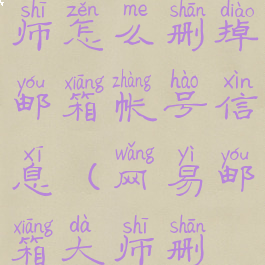 shī zěn me shān diào
师怎么删掉
yóu xiāng zhàng hào xìn
邮箱帐号信
xī wǎng yì yóu
息（网易邮
xiāng dà shī shān
箱大师删